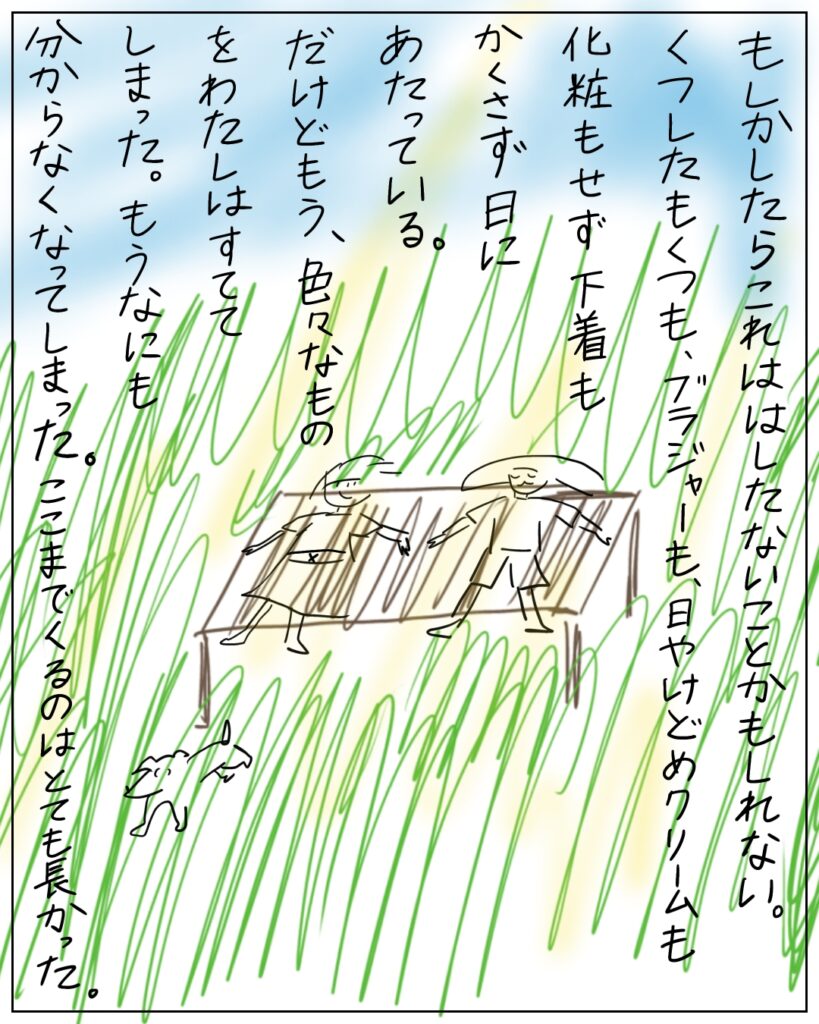 もしかしたらこれははしたないことかもしれない。
くつしたもくつも、ブラジャーも、日やけどめクリームも
化粧もせず下着も
かくさず日に
あたっている。
だけどもう、色々なもの
をわたしはすてて
しまった。もうなにも
分からなくなってしまった。ここまでくるのはとても長かった。